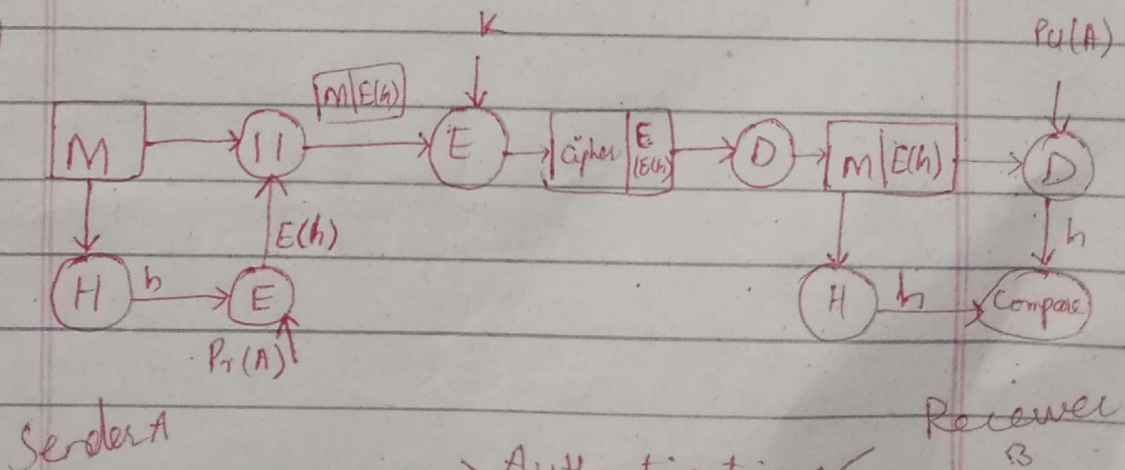 K
PU(A)
M|E(h)
M
||
E
Cipher
E
(E(h))
D
M|E(h)
D
E(h)
h
H
h
E
H
h
Compare
Pr(A)
Sender A
Receiver
B